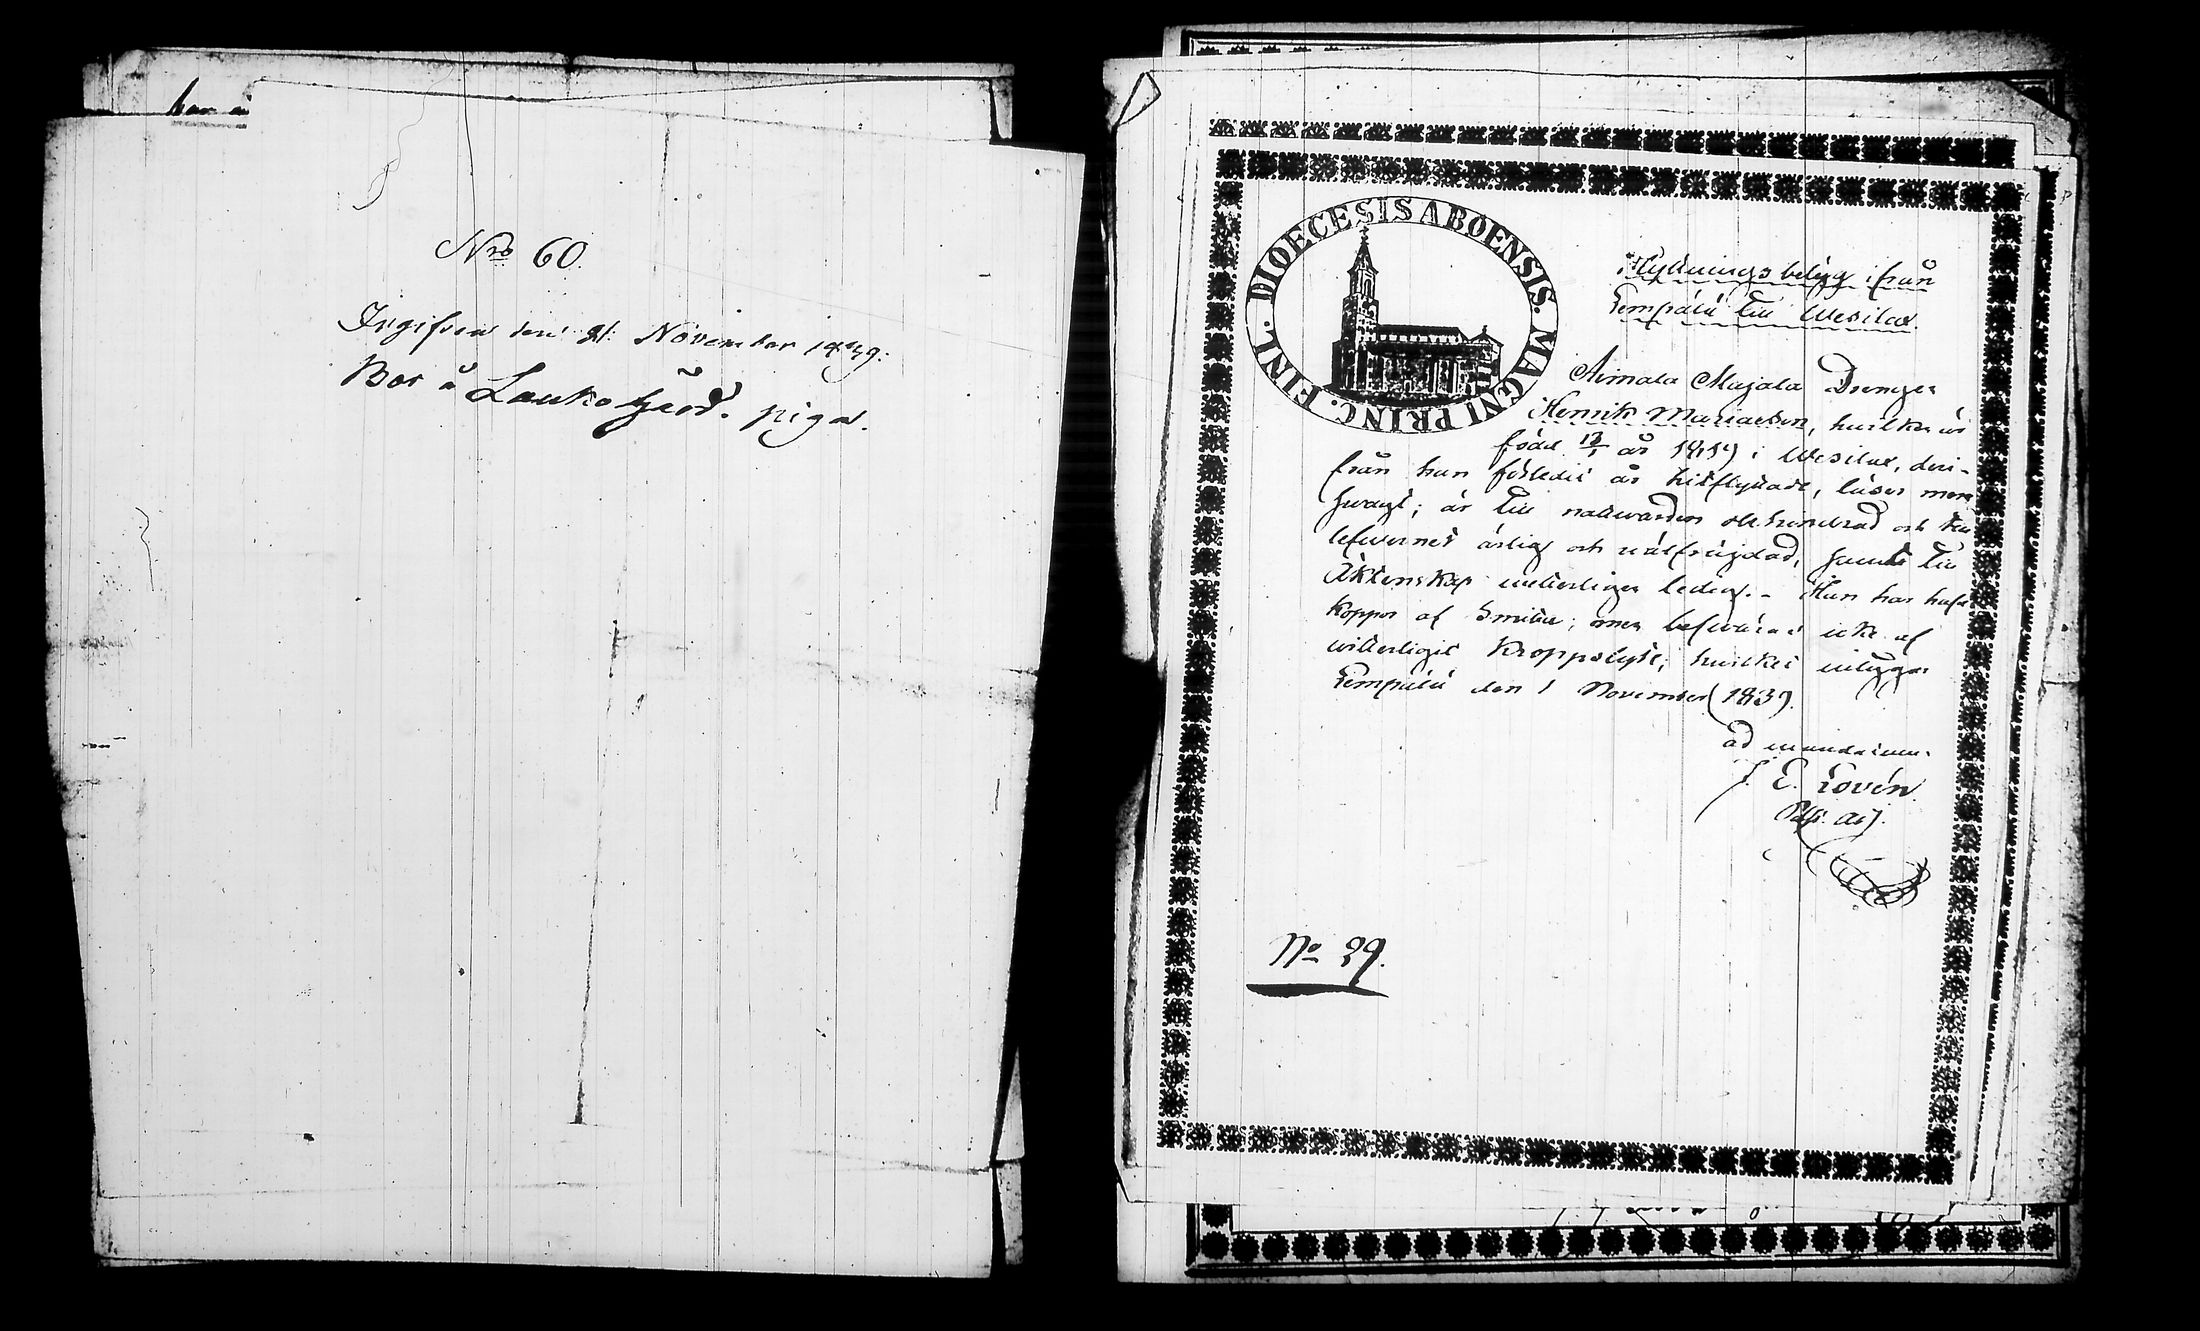 har å
Nro 60.
Ingifven den 21 November 1839.
Bor å Lauko gård. piga.
DIOECESIS ABOENSIS. MAGNI PRINC. FINL.
Flyttningsbetyg ifrån
Lempälä till Wesilax.
Aimala Majala Drengen
Henrik Mariaeson, hvilken är
född 13/1 år 1819 i Wesilax, deri-
från han förledit år hitflyttade, läser men
svagt; är till nattvarden och till
lefvernet ärlig och välfrägdad, samt till
Äktenskap ledig. - Han har haft
koppor af Smitta; men besväras icke af
Kroppslyte; hvilket intygar
Lempälä den 1 November 1839.
ad mandatum.
J. E. Lovén.
Adj.
No 39.